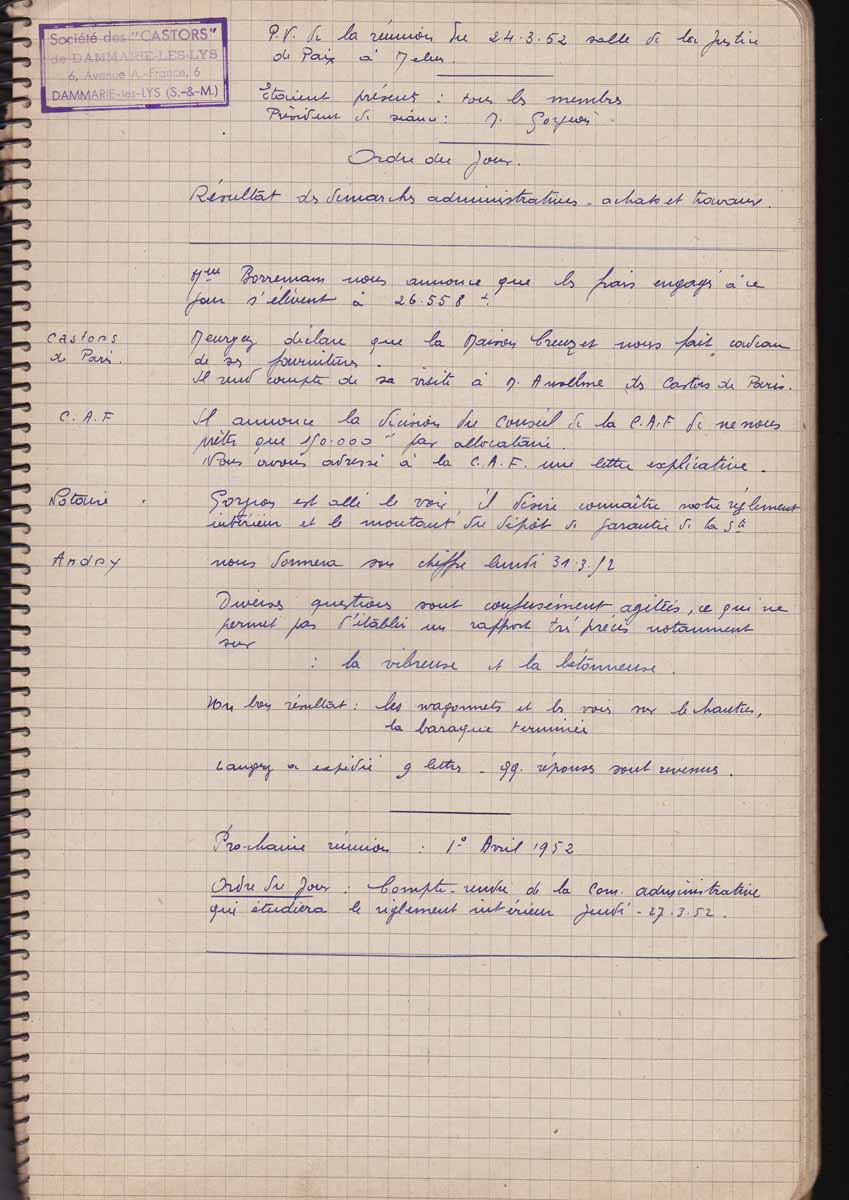 Société des "CASTORS"
de DAMMARIE-LES-LYS
6, Avenue A.-France, 6
DAMMARIE-les-LYS (S.-&-M.)
P.V. de la réunion du 24.3.52 salle de la Justice
de Paix à Melun.
Etaient présent : tous les membres
Président de séance : M.
Ordre du Jour.
Résultat des démarches administratives - achats et travaux.
Mme Borremans nous annonce que les frais engagés à ce
jour s'élèvent à 26.558
Castors
de Paris.
déclare que la Maison Creuzet nous fait cadeau
de ses fournitures.
Il rend compte de sa visite à M. Anselme des Castors de Paris.
C.A.F
Il annonce la décision du Conseil de la C.A.F de ne nous
prêter que 150.000 par allocataire.
Nous avons adressé à la C.A.F. une lettre explicative.
Notaire
est allé le voir il désire connaître notre règlement
intérieur et le montant du dépôt de garantie de la Sté
Andoy
nous donnera son chiffre lundi 31.3.52
Diverses questions sont confusément agitées, ce qui ne
permet pas d'établir un rapport très précis notamment
sur
: la vibreuse et la bétonneuse.
Un bon résultat : les wagonnets et les voies sur le chantier,
la baraque terminée
a expédié 9 lettres - qq. réponses sont revenues.
Prochaine réunion : 1° Avril 1952
Ordre du Jour : Compte-rendu de la Com. administrative
qui étudiera le règlement intérieur jeudi - 27.3.52.